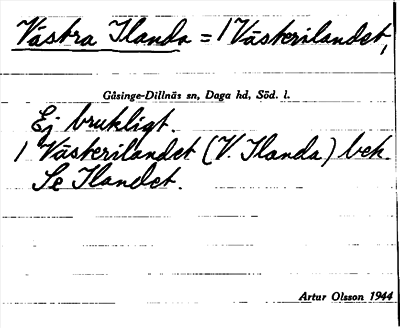 Västra Ilanda = 1 Västerilandet,
Gåsinge-Dillnäs sn, Daga hd, Söd. l.
Ej brukligt.
1 Västerilandet (V. Ilanda) bek.
Se Ilandet.
Artur Olsson 1944